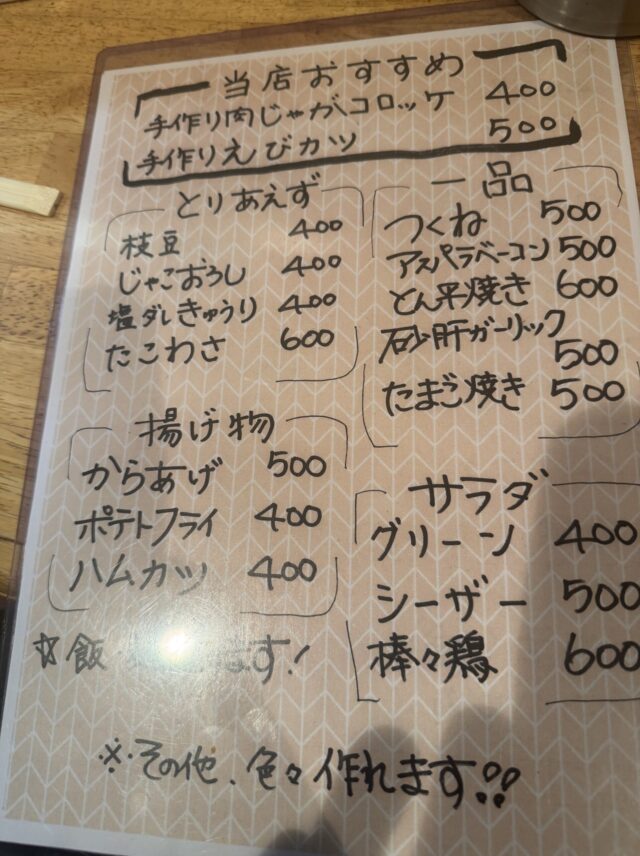 当店おすすめ
手作り肉じゃがコロッケ 400
手作りえびカツ 500
とりあえず
枝豆 400
じゃこおろし 400
塩ダレきゅうり 400
たこわさ 600
一品
つくね 500
アスパラベーコン 500
とん平焼き 600
砂肝ガーリック
500
たまご焼き 500
揚げ物
からあげ 500
ポテトフライ 400
ハムカツ 400
サラダ
グリーン 400
シーザー 500
棒々鶏 600
☆飯 ます!
※その他、色々作れます!!